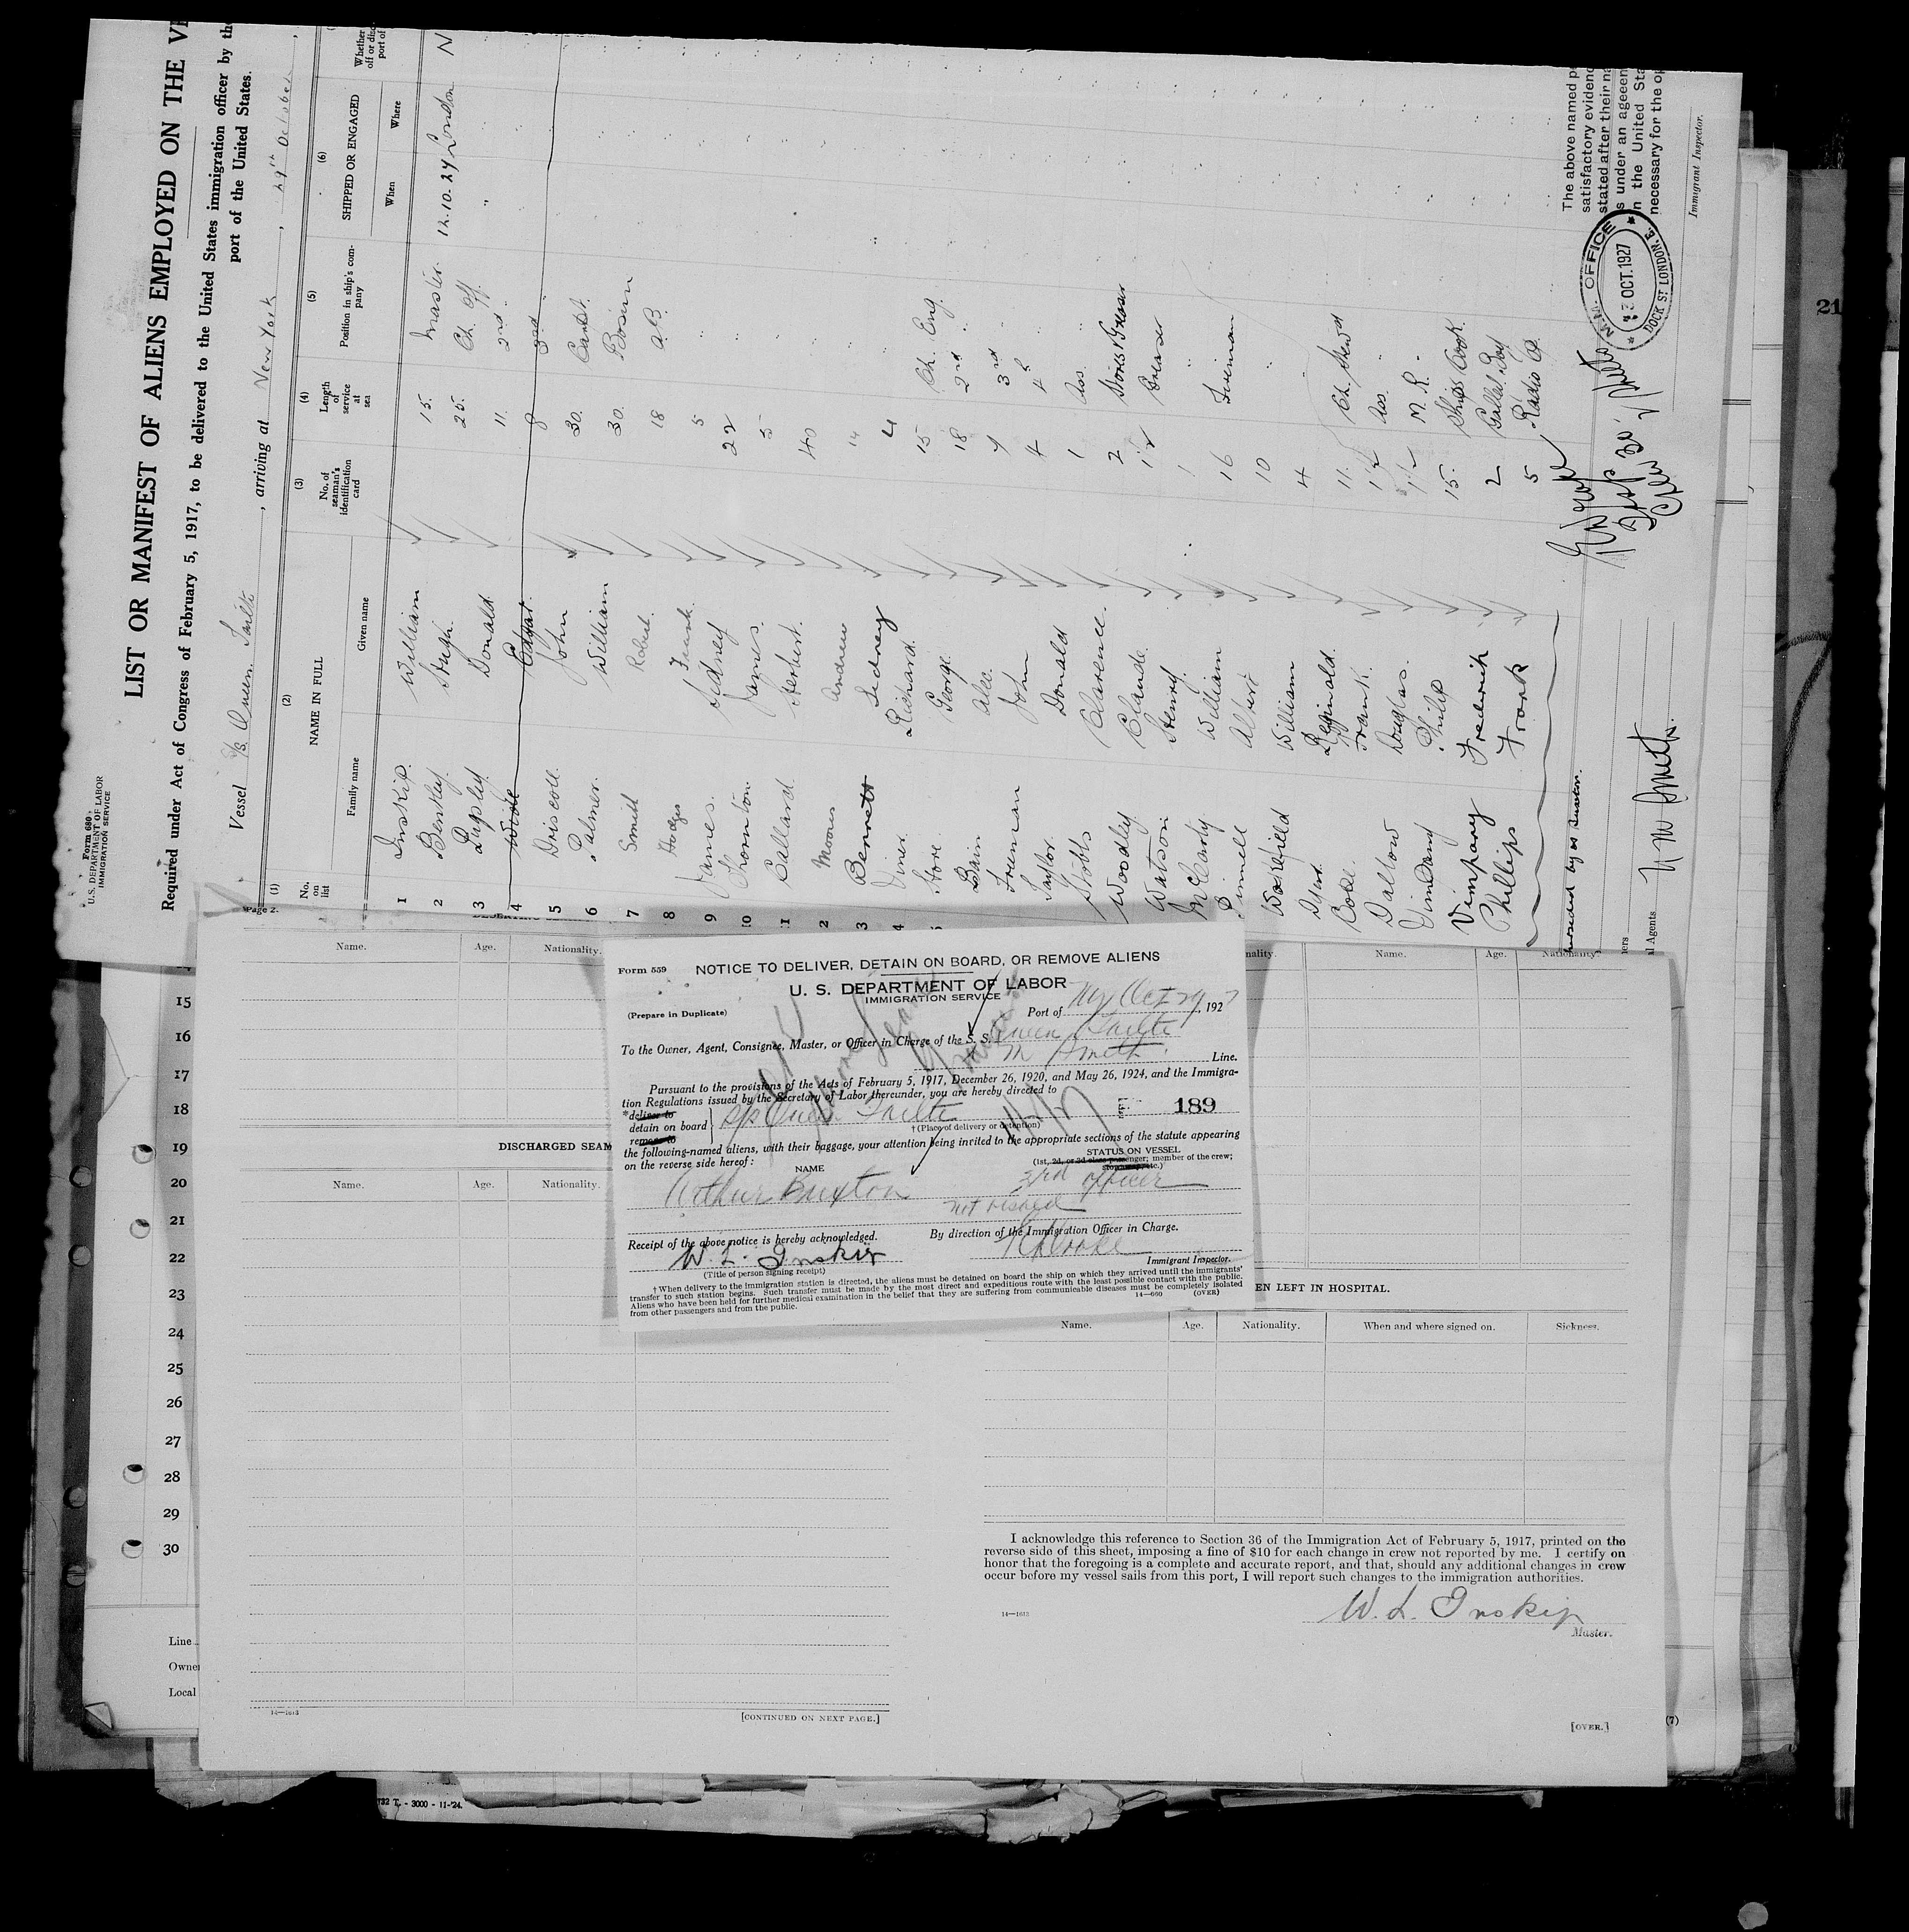 Form 680
U. S. DEPARTMENT OF LABOR
IMMIGRATION SERVICE
LIST OR MANIFEST OF ALIENS EMPLOYED ON THE VE
Required under Act of Congress of February 5, 1917, to be delivered to the United States immigration officer by the
port of the United States.
Vessel S/S Queen Tailte, arriving at New York, 29th October,
(1) (2) (3) (4) (5) (6)
No. on list NAME IN FULL No. of seaman's identification card Length of service at sea Position in ship's company SHIPPED OR ENGAGED Whether
Family name Given name When Where
1 Inskip. William 15. Master. 12.10.27 London N
2 Bentley Hugh. 25. Ch. Off. "
3 Lapsley. Donald. 11. 2nd "
4 Wide Edgar. 8 3rd
5 Driscoll. John 30. Carpt.
6 Palmer. William 30. Bosun
7 Smith Robert. 18 A.B.
8 Hodges Frank. 5 "
9 James. Sidney 22 "
10 Thornton. James. 5 "
11 Ballard. Herbert. 40 "
2 Moores Andrew 14 "
3 Bennett Sidney 4 "
4 Viner. Richard. 15 Ch. Eng.
Hore. George. 18 2nd "
Bain Alec. 7 3rd "
Freeman John 4 4th "
Taylor. Donald 1 Ass.
Stobbs Clarence. 2 Stores & Greaser
Woodley Claude. Greaser
Watson Henry. 1 "
McCarthy William 16 Fireman
Pinnell Albert 10 "
Wakefield William 4 "
Reginald. 11. Ch. Stewd
Frank. Ass. "
Douglas. M. R.
Philip 15. Ships Cook.
Vimpany Frederick 2 Cabin Boy
Phillips Frank 5 Radio O.
The above named p
satisfactory evidenc
stated after their na
s under an ageeen
n the United Sta
necessary for the op
Immigrant Inspector.
M.M. OFFICE
OCT. 1927
DOCK ST LONDON. E.
l Agents
21
Page 2.
Name. Age. Nationality.
nality. Name. Age. Nationality
15
16
17
18
19
20
21
22
23
24
25
26
27
28
29
30
DISCHARGED SEAM
Name. Age. Nationality.
Form 559 NOTICE TO DELIVER, DETAIN ON BOARD, OR REMOVE ALIENS
U. S. DEPARTMENT OF LABOR
IMMIGRATION SERVICE
(Prepare in Duplicate) Port of NY Oct 29, 1927
To the Owner, Agent, Consignee, Master, or Officer in Charge of the S. S. Queen Tailte
M Smith. Line.
Pursuant to the provisions of the Acts of February 5, 1917, December 26, 1920, and May 26, 1924, and the Immigra-
tion Regulations issued by the Secretary of Labor thereunder, you are hereby directed to
*deliver to
detain on board S/S Queen Tailte 189
remove to †(Place of delivery or detention)
the following-named aliens, with their baggage, your attention being invited to the appropriate sections of the statute appearing
on the reverse side hereof:
NAME STATUS ON VESSEL
(1st, 2d, or 3d class passenger; member of the crew;
stowaway, etc.)
Arthur Buxton 3rd officer
not visaed
Receipt of the above notice is hereby acknowledged. By direction of the Immigration Officer in Charge.
W. L. Inskip
(Title of person signing receipt) Immigrant Inspector.
†When delivery to the immigration station is directed, the aliens must be detained on board the ship on which they arrived until the immigrants'
transfer to such station begins. Such transfer must be made by the most direct and expeditious route with the least possible contact with the public.
Aliens who have been held for further medical examination in the belief that they are suffering from communicable diseases must be completely isolated
from other passengers and from the public. 14—660 (OVER)
EN LEFT IN HOSPITAL.
Name. Age. Nationality. When and where signed on. Sickness.
I acknowledge this reference to Section 36 of the Immigration Act of February 5, 1917, printed on the
reverse side of this sheet, imposing a fine of $10 for each change in crew not reported by me. I certify on
honor that the foregoing is a complete and accurate report, and that, should any additional changes in crew
occur before my vessel sails from this port, I will report such changes to the immigration authorities.
14—1613 W. L. Inskip
Master.
Line
Owne
Local
14—1613 [CONTINUED ON NEXT PAGE.] [OVER.] (7)
732 T. - 3000 - 11-'24.